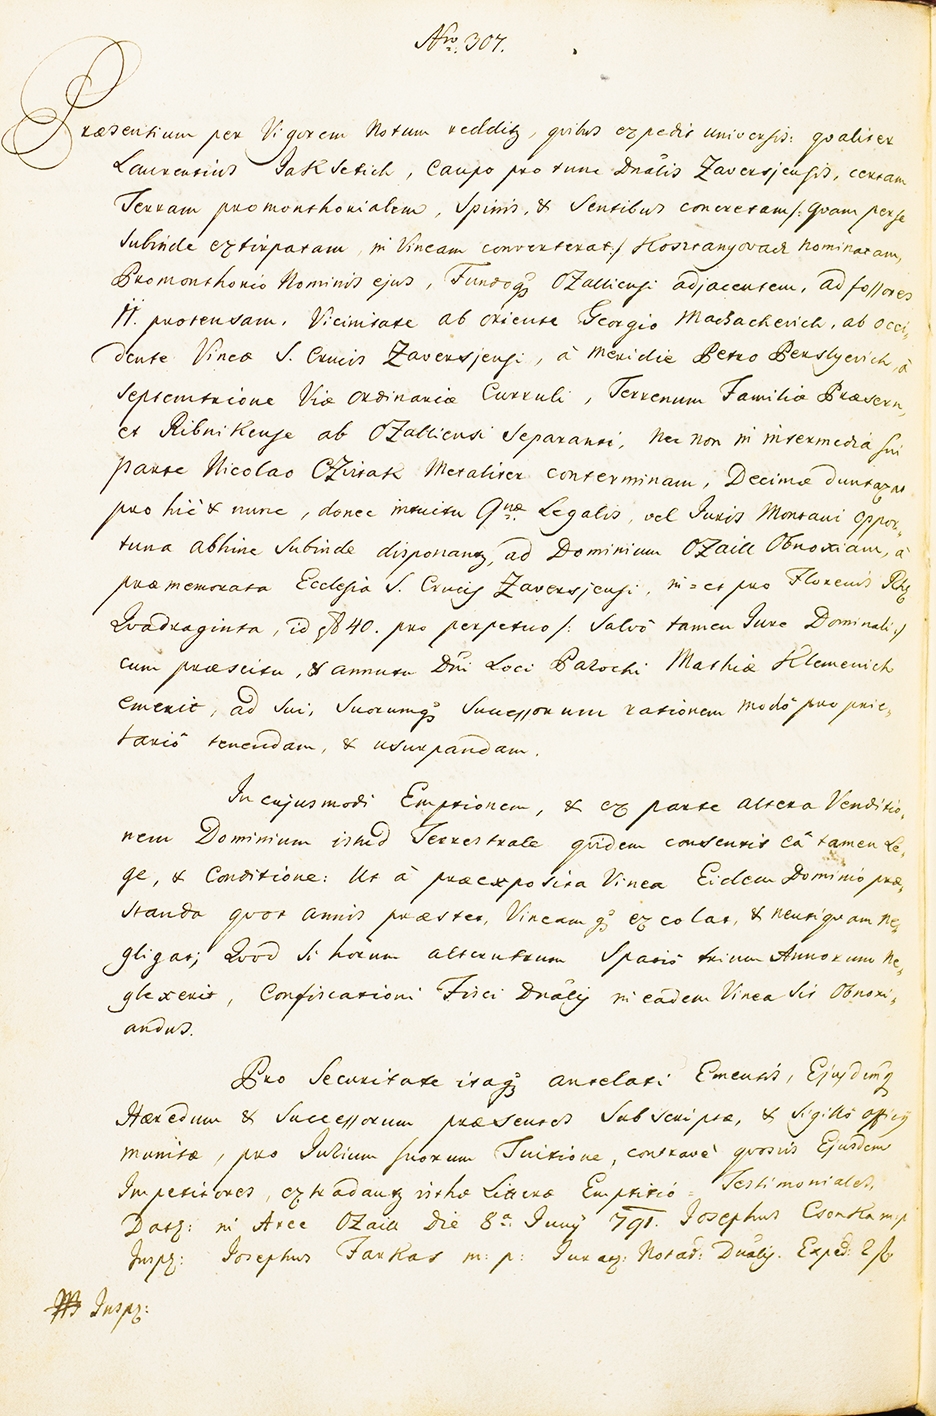 Nro. 307.
Præsentium per Vigorem Notum redditq, quibus expedit universis: qualiter
Laurentius JakSetich, Caupo pro tunc Dnalis Zaversjensis, certam
Terram promonthorialem, Spinis, & Sentibus concretam /: quam per se
Subinde extirpatam, in Vineam converterat :/ Hosztanyovacz nominatam,
Promonthorio Nominis ejus, Fundoq3 OZalliensi adjacentem, ad fossores
protensam, Vicinitate ab oriente Georgio Machachevich, ab occi„
dente Vineæ S. Crucis Zaversjensi, à Meridie Petro Perslyevich, à
Septemtrione Viæ Ordinariæ Curruli, Terrenum Familiæ
et Ribnikense ab OZalliensi Separanti, Nec non in intermedia sui
parte Nicolao CZvitak Metaliter conterminam, Decimæ duntaxat
pro hic & nunc, donec intuitu Legalis, vel Juris Montani oppor„
tuna abhinc Subinde disponantq, ad Dominium OZaill Obnoxiam, à
præmemorata Ecclesia S. Crucis Zaversjensi, in = et pro Florenis
Quadraginta, id 40. pro perpetuo /: Salvô tamen Jure Dominali :/
cum præscitu, & annutu Dni Loci Parochi Mathiæ Klemenich
emerit, ad Sui, Suorumq3 Successorum rationem modô proprie„
tariô tenendam, & usurpandam.
In cujusmodi Emptionem, & ex parte altera Venditio„
nem Dominium istud Terrestrale quidem consensit eâ tamen Le„
ge, & Conditione: Ut à præexposita Vinea Eidem Dominio præ„
standa quot annis præstet, Vineamq3 excolat, & neutiquam ne„
gligat; Quod Si horum alterutrum Spatiô trium Annorum ne„
glexerit, Confiscationi Fisci Dnalis in eadem Vinea Sit Obnoxi„
andus.
Pro Securitate itaq3 antelati Ementis, Ejusdemq
Hæredum & Successorum præsentes Subscriptæ, & Sigillô Officij
munitæ, pro Jurium suorum Tuitione, contra quosvis Ejusdem
Impetitores, extradantq isthæ Litteræ Emptitio = Testimoniales.
Datq: in Arce OZail Die 8a Junij 791. Josephus Csonka m.p.
Inspq: Josephus Farkas m: p: Juratq: Notar: Dnalis. Exped: 2 f.
Inspq: